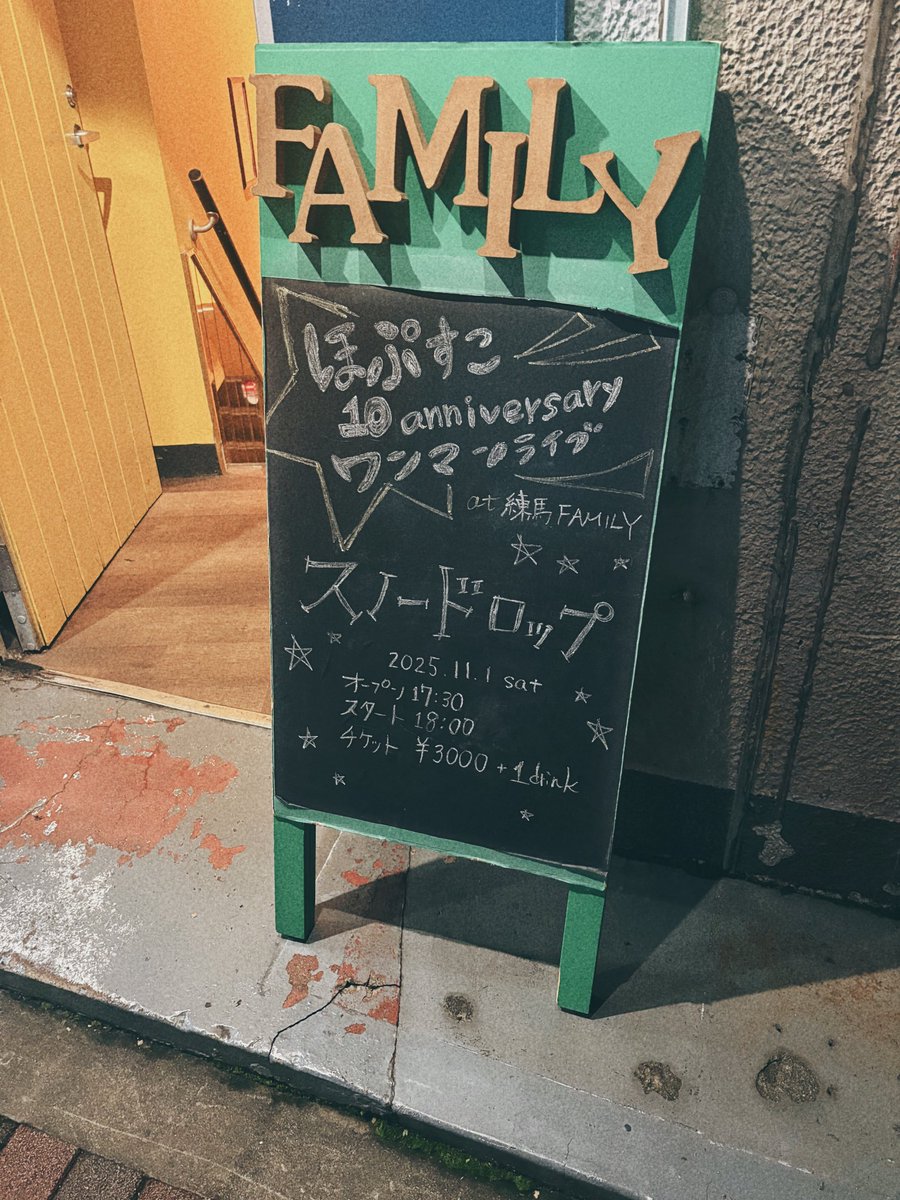 FAMILY
ほぷすこ
10 anniversary
ワンマンライブ
at 練馬FAMILY
スノードロップ
2025.11.1 sat
オープン 17:30
スタート 18:00
チケット ¥3000 + 1drink